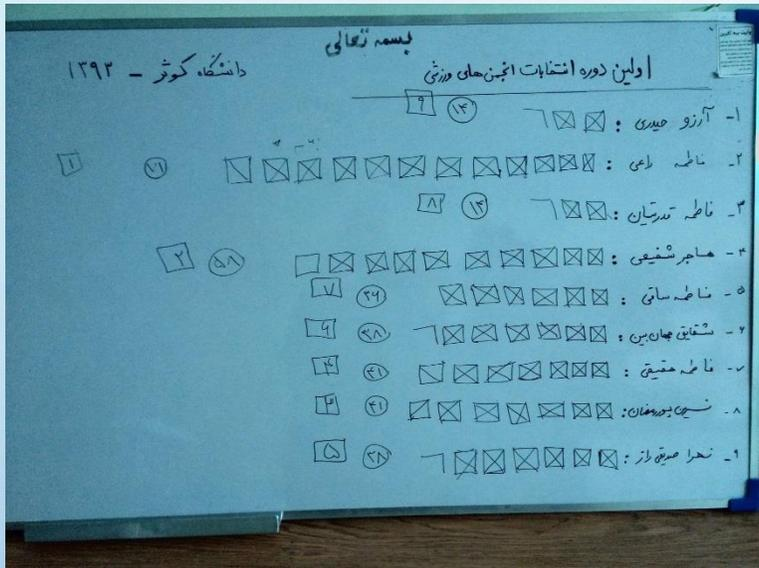 بسمه تعالی
اولین دوره انتخابات انجمن های ورزشی
دانشگاه کوثر - ۱۳۹۳
۱- آرزو حیدری : ۱۴ ۹
۲- فاطمه راعی : ۷۱ ۱
۳- فاطمه قدرتیان : ۱۴ ۸
۴- هاجر شفیعی : ۵۸ ۲
۵- فاطمه ساقی : ۳۶ ۷
۶- شقایق جهان بین : ۳۸ ۶
۷- فاطمه حقیقی : ۴۱ ۴
۸- نسرین پوررمضان : ۴۱ ۳
۹- زهرا صدیقی راز : ۳۸ ۵